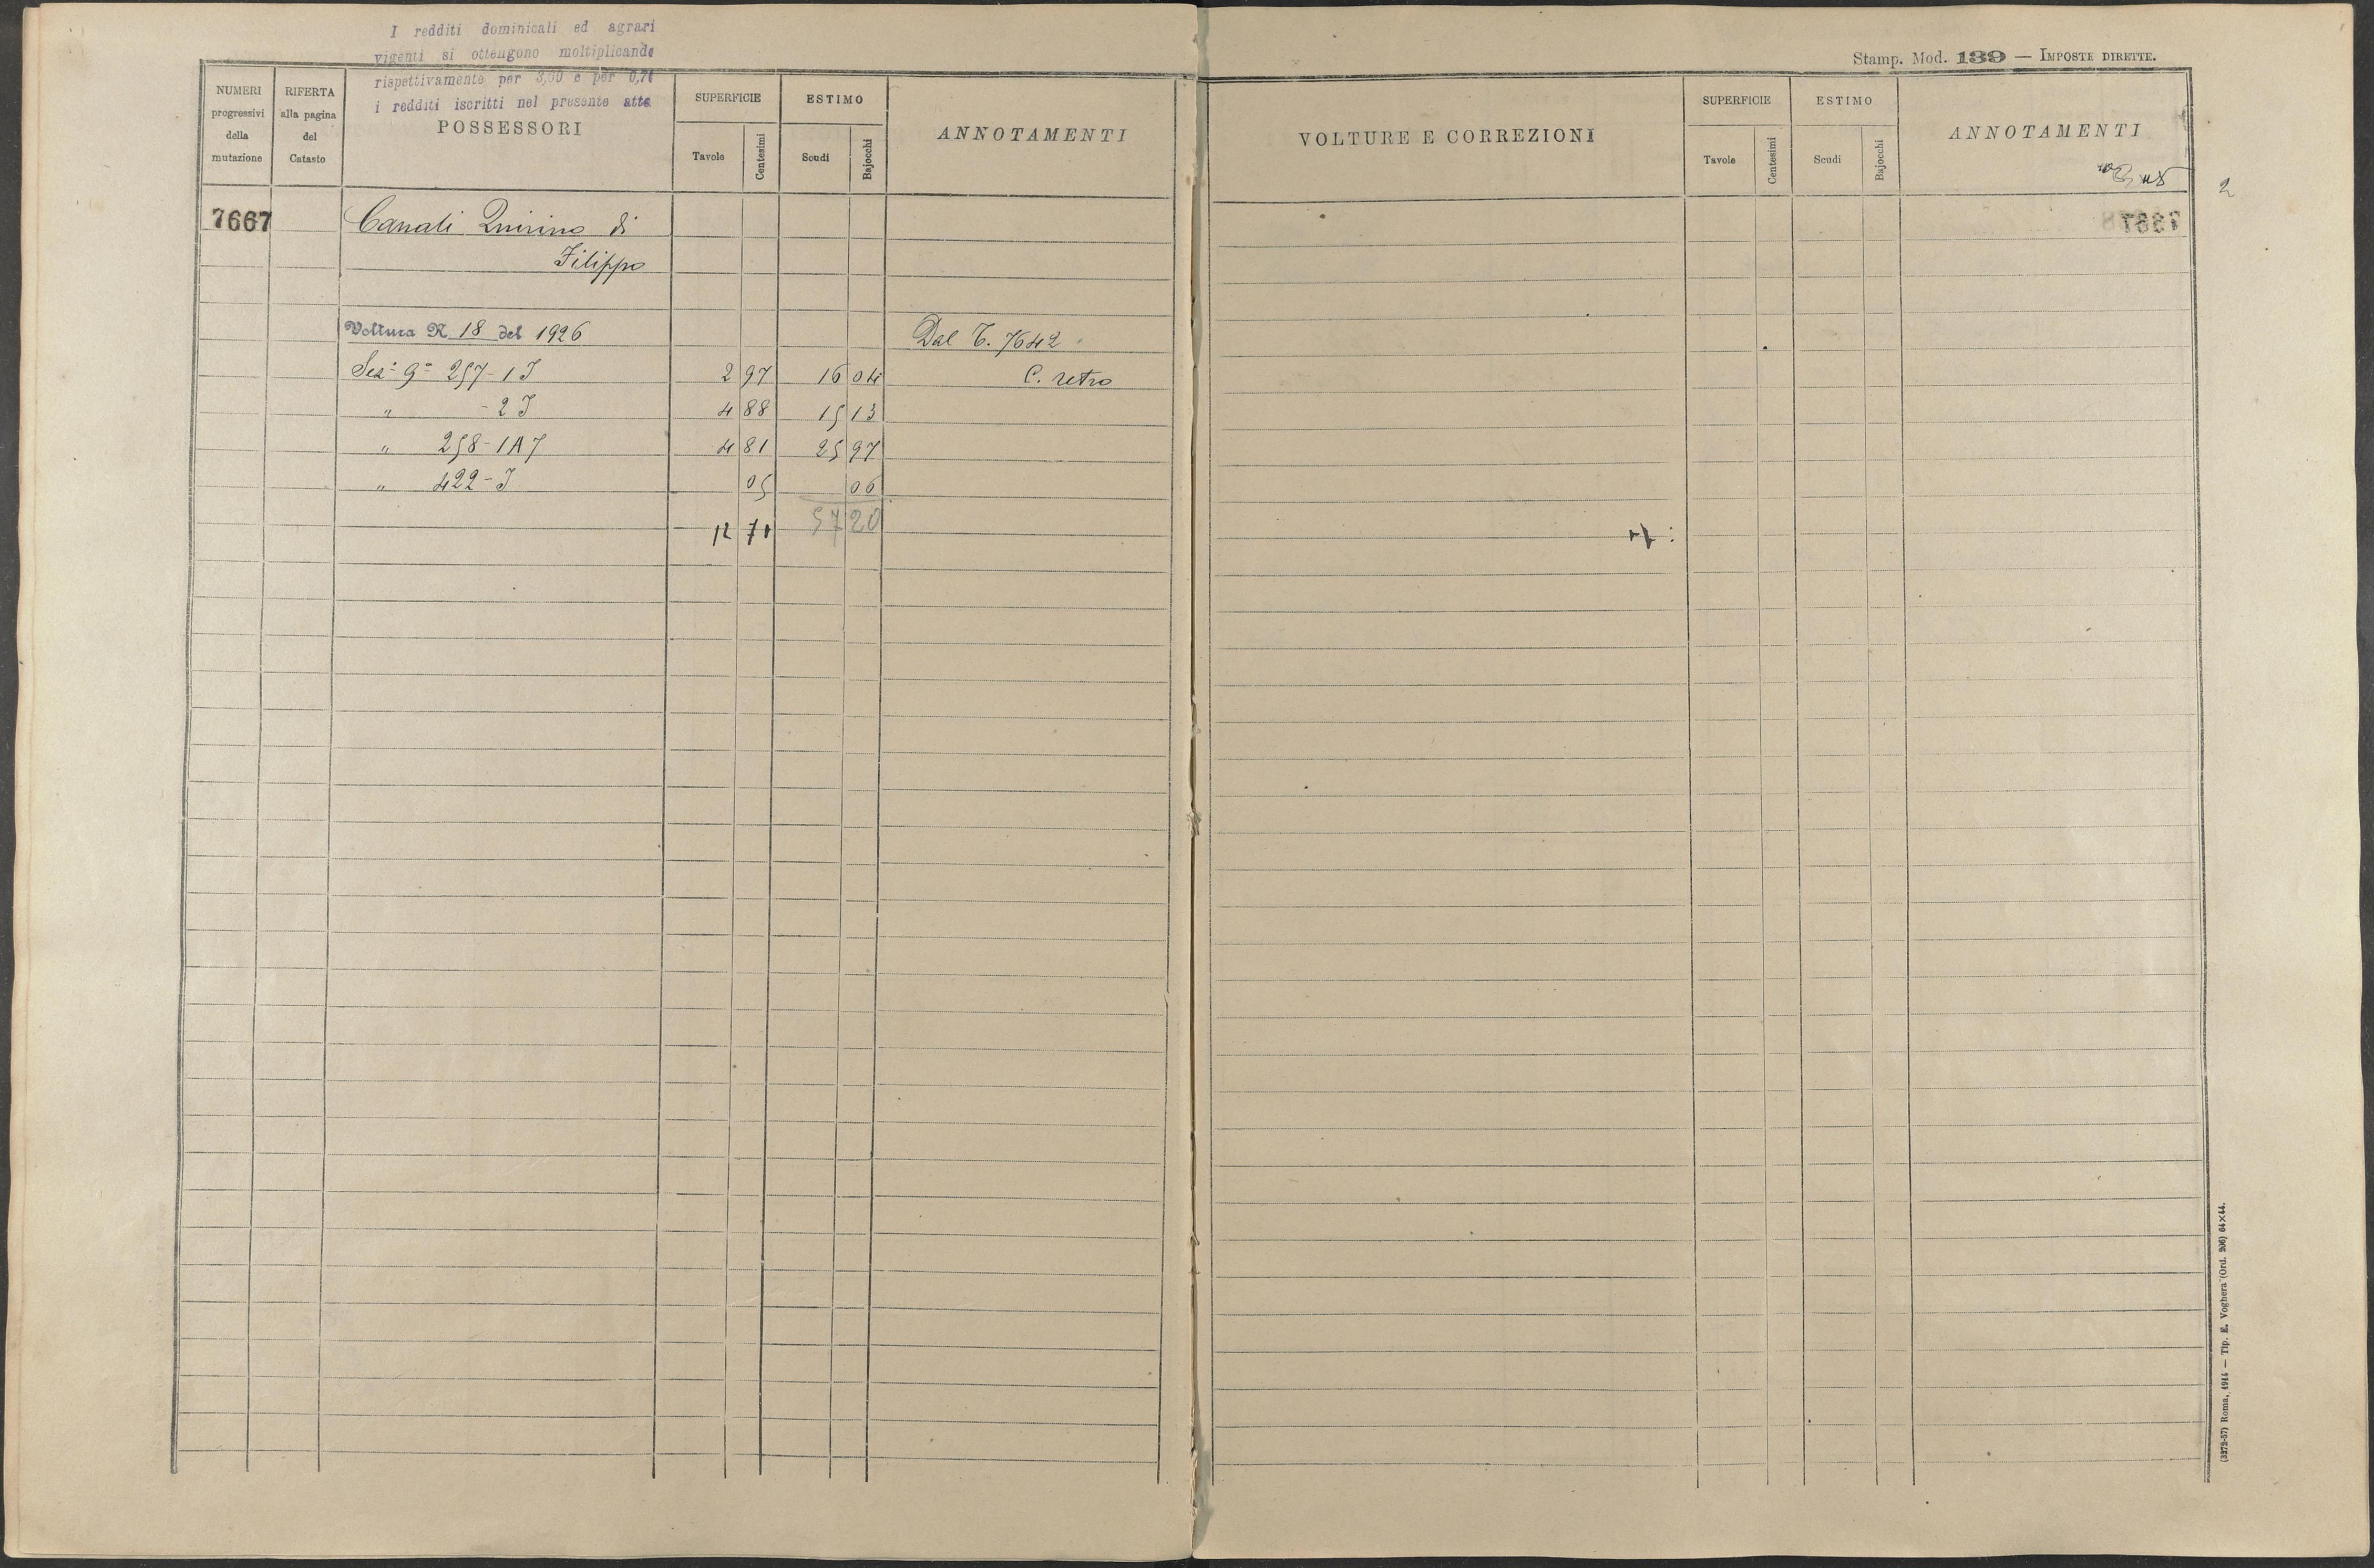 I redditi dominicali ed agrari
vigenti si ottengono moltiplicando
rispettivamente per 3,60 e per
i redditi iscritti nel presente atto
NUMERI progressivi della mutazione
RIFERTA alla pagina del Catasto
POSSESSORI
SUPERFICIE
Tavole Centesimi
ESTIMO
Scudi Bajocchi
ANNOTAMENTI
7667 Canali Quirino di
Filippo
Voltura N 18 del 1926 Dal T. 7642
Sez. 9ª 257-1 I 2 97 16 04 C. retro
" -2 I 4 88 15 13
" 258-1A7 4 81 25 97
" 422-I 05 06
12 71 57 20
Stamp. Mod. 139 — IMPOSTE DIRETTE.
VOLTURE E CORREZIONI
SUPERFICIE
Tavole Centesimi
ESTIMO
Scudi Bajocchi
ANNOTAMENTI
2
(3272-57) Roma, 1914 — Tip. E. Voghera (Ord. 206) 64×44.